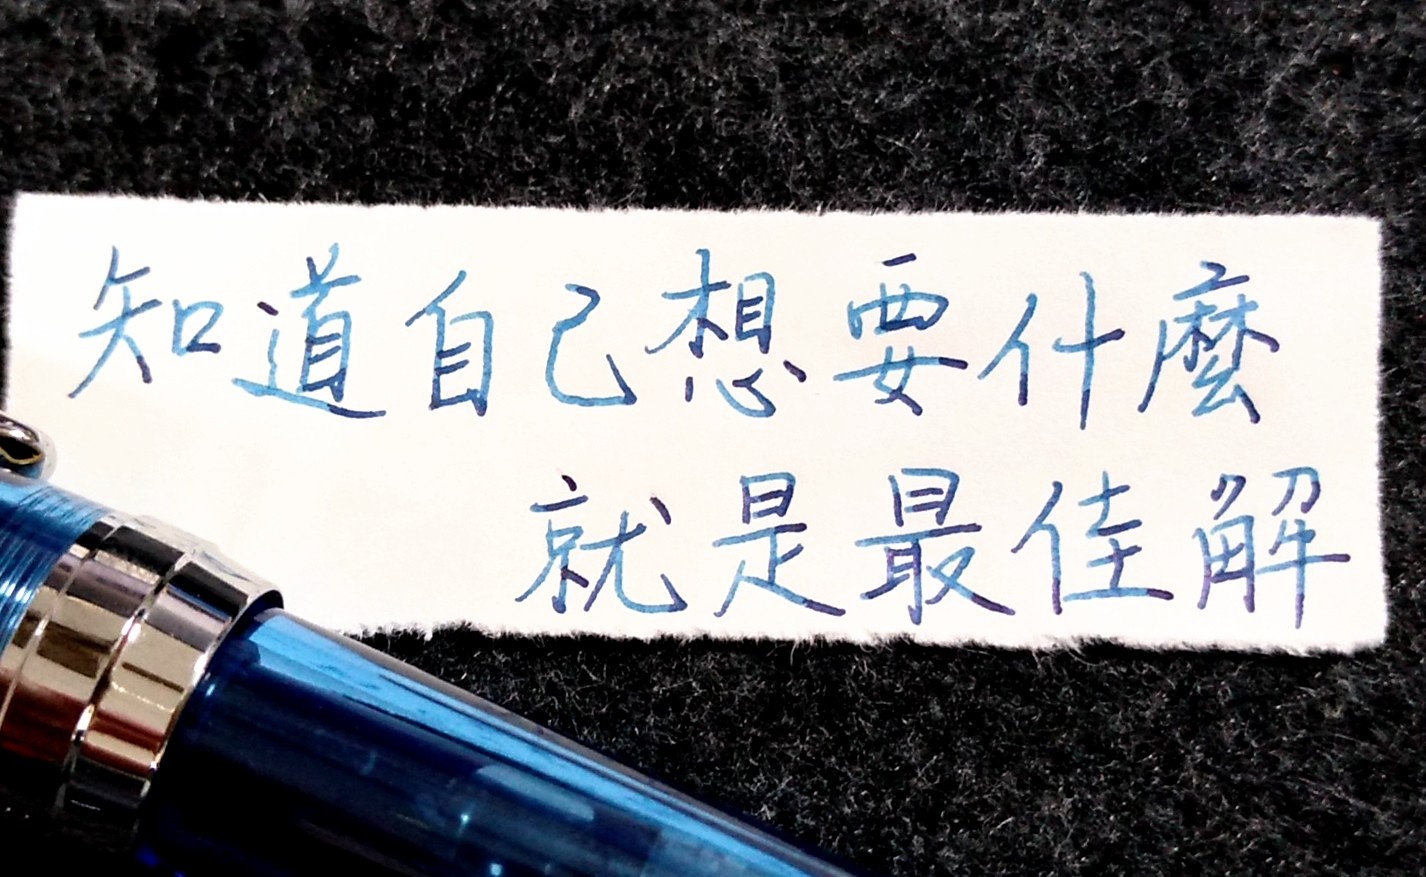 知道自己想要什麼
就是最佳解